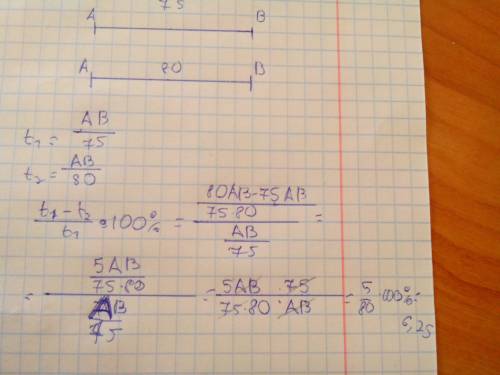 75
A B
A 80 B
t₁ = AB/75
t₂ = AB/80
(t₁ - t₂)/t₁ · 100% = ((80AB-75AB)/(75·80))/(AB/75) =
= (5AB/(75·80))/(AB/75) = (5AB · 75)/(75·80 · AB) = 5/80 · 100% =
6,25